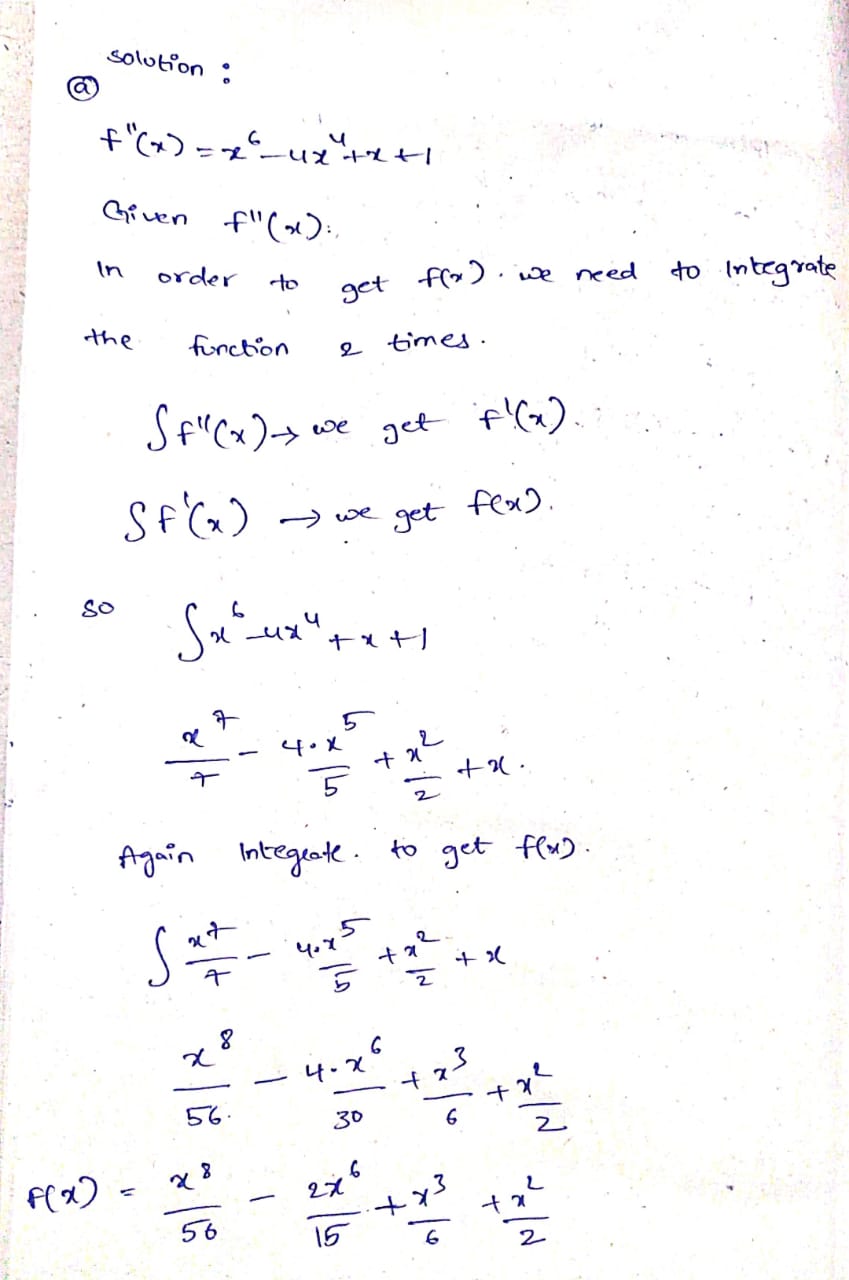 solution :
(a)
f"(x) = x⁶ - 4x⁴ + x + 1
Given f"(x).
In order to get f(x). we need to Integrate
the function 2 times.
∫f"(x) → we get f'(x).
∫f'(x) → we get f(x).
so ∫x⁶ - 4x⁴ + x + 1
x⁷/7 - 4.x⁵/5 + x²/2 + x.
Again Integrate. to get f(x).
∫x⁷/7 - 4.x⁵/5 + x²/2 + x
x⁸/56. - 4.x⁶/30 + x³/6 + x²/2
F(x) = x⁸/56 - 2x⁶/15 + x³/6 + x²/2